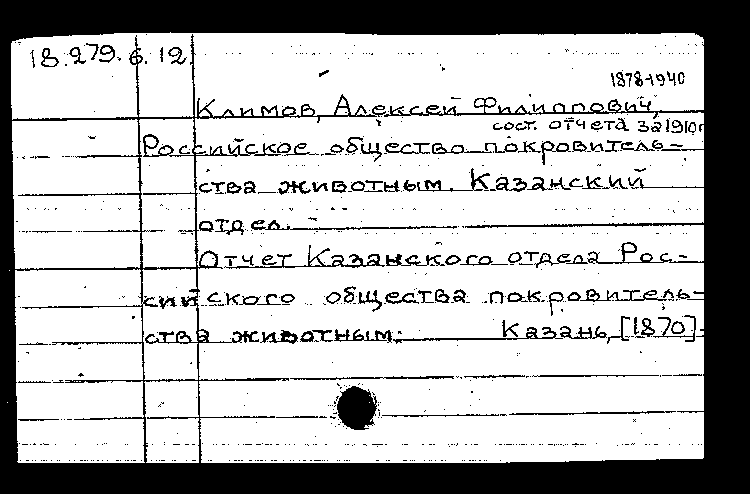 18.279.6.12
1878-1940
Климов, Алексей Филиппович,
сост. отчета за 1910г
Российское общество покровитель-
ства животным. Казанский
отдел. -
Отчет Казанского отдела Рос-
сийского общества покровитель-
ства животным: Казань, [1870]-